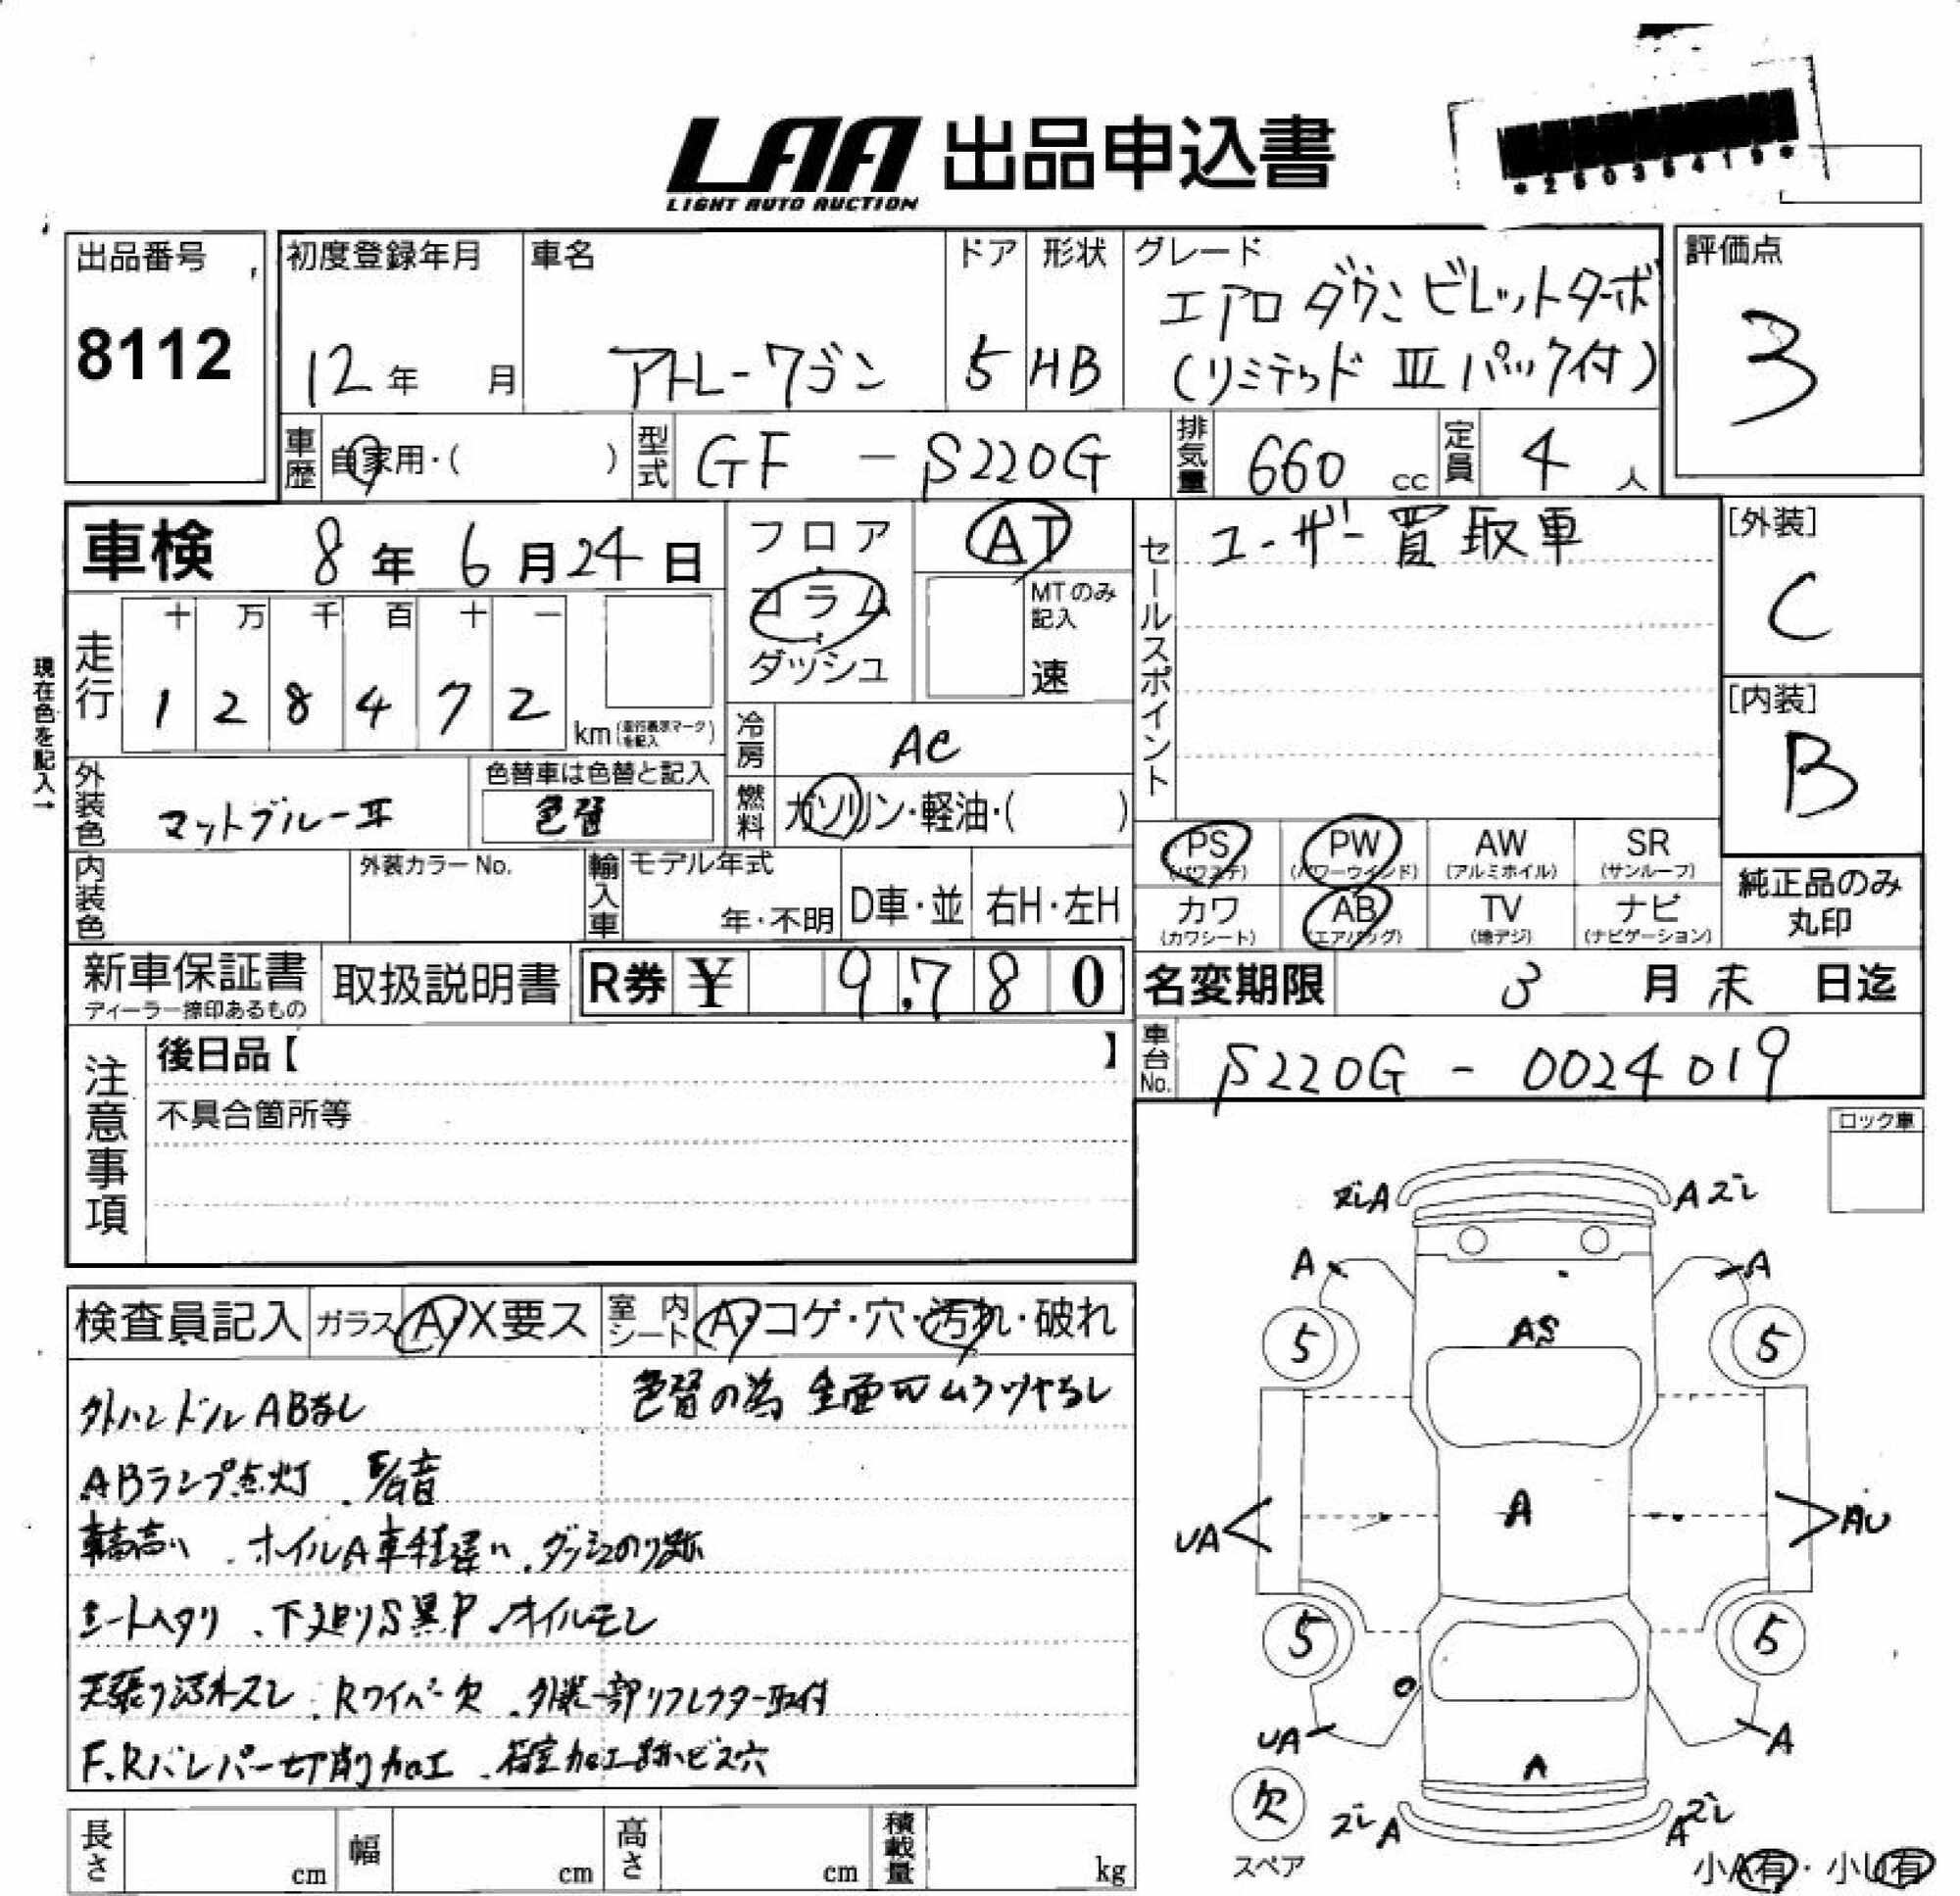 LAA 出品申込書
LIGHT AUTO AUCTION
出品番号
8112
初度登録年月
12年 月
車名
アトレーワゴン
ドア
5
形状
HB
グレード
エアロダウンビレットターボ
(リミテッド III パック付)
評価点
3
車歴 自家用・( )
型式 GF - S220G
排気量 660 cc
定員 4 人
車検 8年 6月 24日
フロア
コラム
ダッシュ
AT
MTのみ記入
速
セールスポイント
ユーザー買取車
[外装]
C
[内装]
B
現在色を記入→
走行
十 万 千 百 十 一
1 2 8 4 7 2
km (走行表示マークを記入)
冷房 AC
外装色 マットブルーII
色替車は色替と記入
色替
燃料 ガソリン・軽油・( )
PS (パワステ)
PW (パワーウインド)
AW (アルミホイル)
SR (サンルーフ)
カワ (カワシート)
AB (エアバッグ)
TV (地デジ)
ナビ (ナビゲーション)
純正品のみ
丸印
内装色
外装カラーNo.
輸入車
モデル年式
年・不明
D車・並
右H・左H
新車保証書
ディーラー捺印あるもの
取扱説明書
R券 ¥ 9,780
名変期限 3月末日迄
車台No. S220G - 0024019
注意事項
後日品【 】
不具合箇所等
ロック車
検査員記入
ガラス A・X要ス
室内シート A・コゲ・穴・汚れ・破れ
外ハンドルABなし
色替の為 全面 ムラツヤなし
ABランプ点灯
車高高い . ホイルA車種違い . ダッシュのり跡
シートヘタリ . 下廻りS異P . オイルモレ
天張り汚れズレ . Rワイパー欠 . 外装一部リフレクター取付
F.Rバンパー切削加工 . 荷室加工跡ビス穴
ズレA
Aズレ
A
A
5
5
AS
UA
A
AU
5
5
UA
A
A
欠
スペア
ズレA
Aズレ
小A有・小U有
長さ cm
幅 cm
高さ cm
積載量 kg